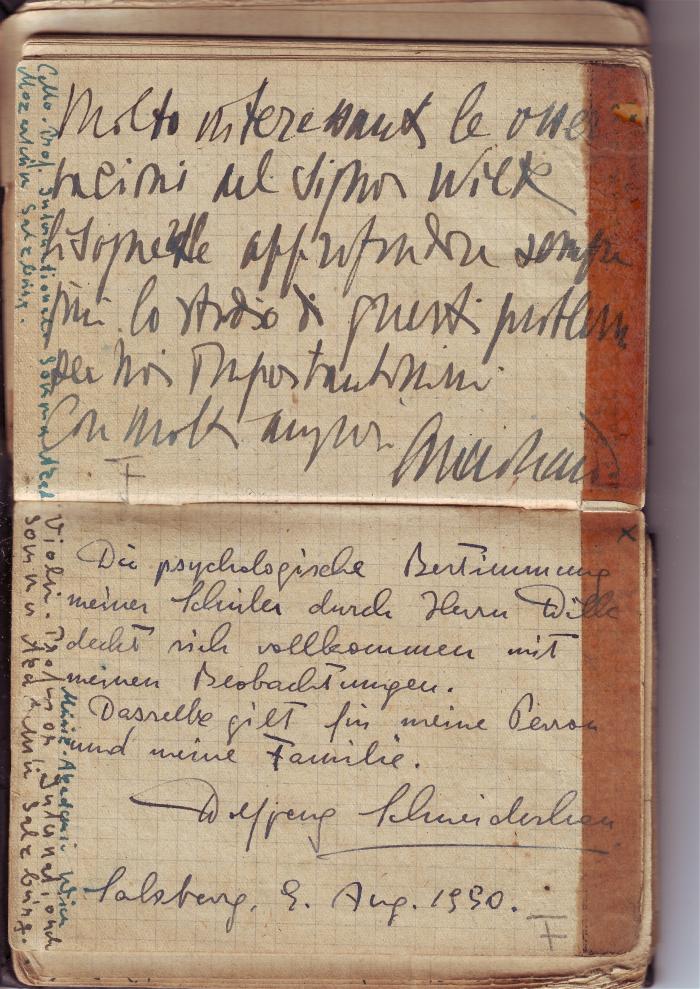 Molto interessanti le osser
vazioni del Signor Wilk
bisognerebbe approfondire sempre
più lo studio di questi problemi
per noi importantissimi
Con molti auguri
Cello. Prof. Internationale Sommer Akad
Mozarteum Salzburg.
F
x
Die psychologische Bestimmung
meiner Schüler durch Herrn Wilk
deckt sich vollkommen mit
meinen Beobachtungen.
Dasselbe gilt für meine Person
und meine Familie.
Wolfgang Schneiderhan
Salzburg, 9. Aug. 1950.
F
Violin. Professor Internationale
Sommer Akademie Salzburg.
Musik-Akademie Wien